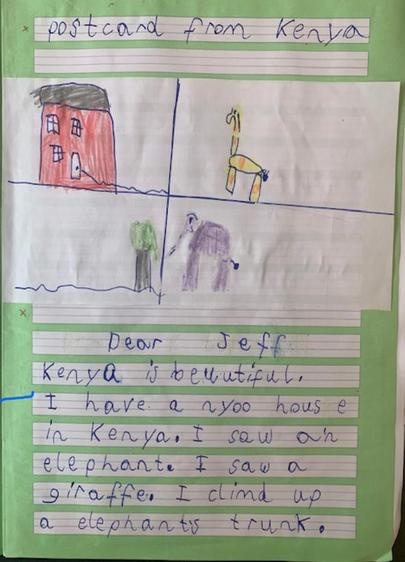 postcard from Kenya
Dear Jeff
Kenya is beuutiful.
I have a nyoo house
in Kenya. I saw an
elephant. I saw a
giraffe. I climd up
a elephants trunk.